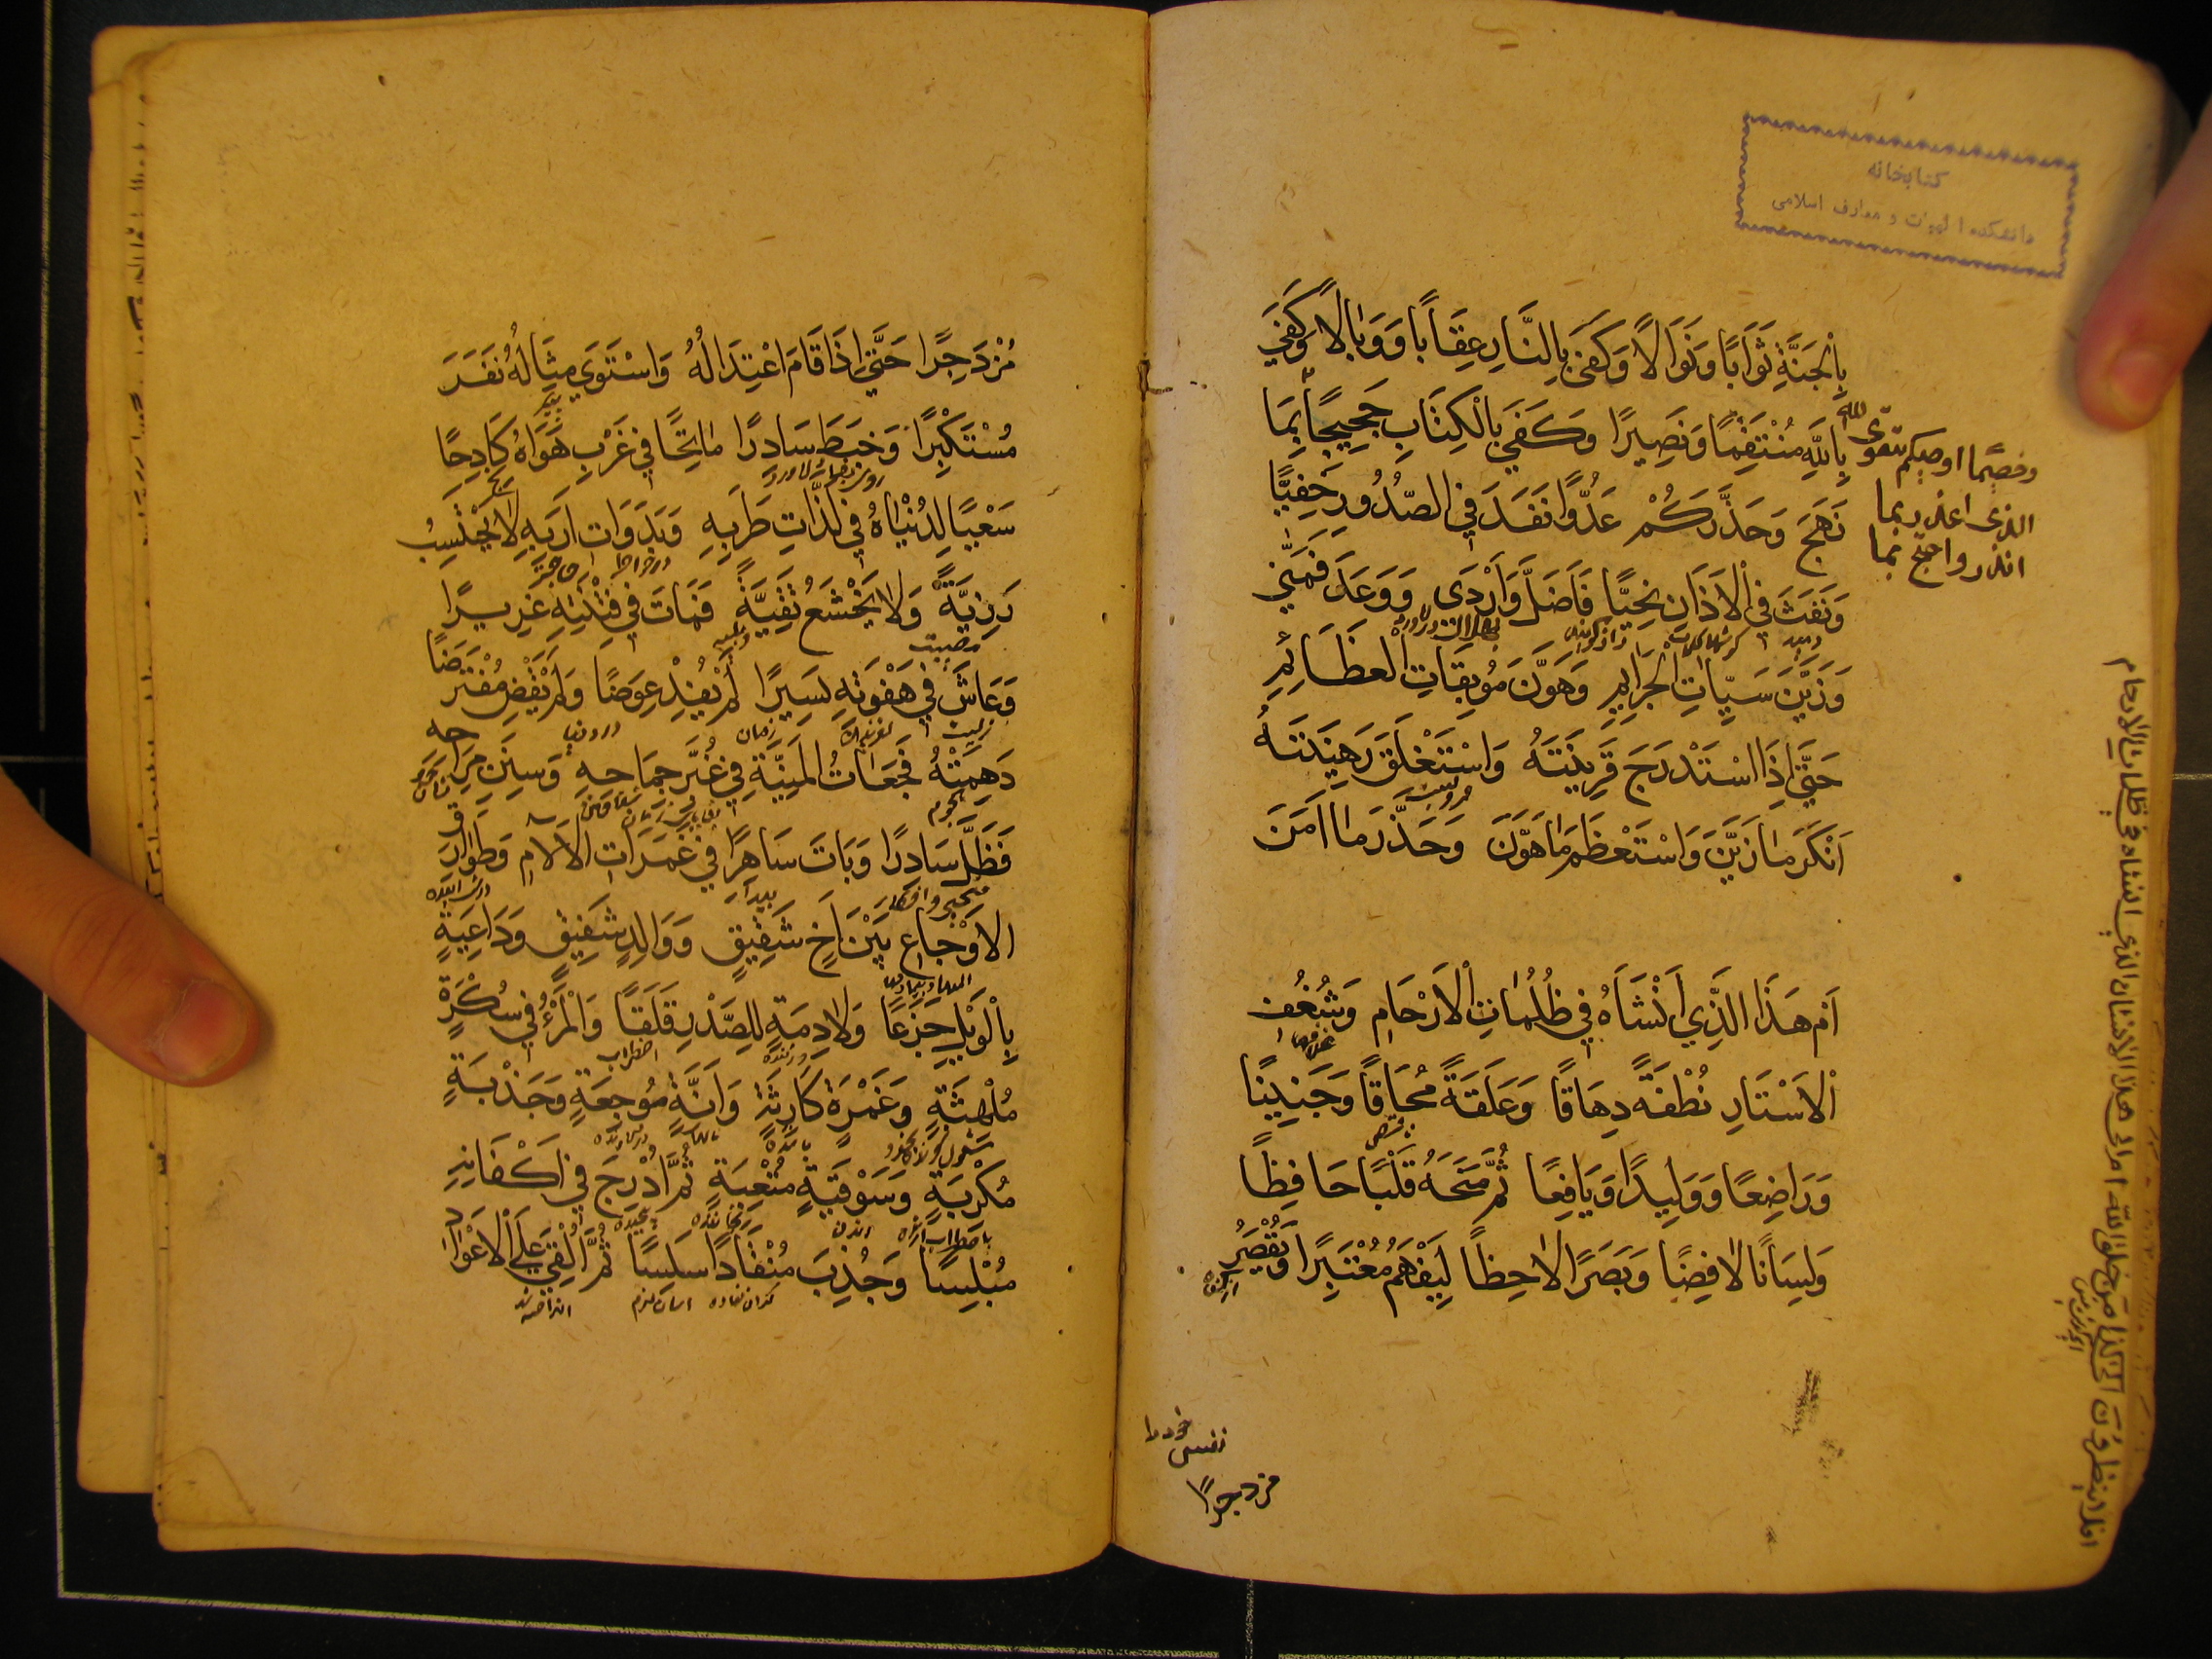 كتابخانه
دانشكده الهيات و معارف اسلامى
بِالْجَنَّةِ ثَوَابًا وَنَوَالًا وَكَفَى بِالنَّارِ عِقَابًا وَوَبَالًا وَكَفَى
بِاللّٰهِ مُنْتَقِمًا وَنَصِيرًا وَكَفَى بِالْكِتَابِ حَجِيجًا بِمَا
وخصيما اوصيكم بتقوى الله
الذى اعذر بما
انذر واحتج بما
نَهَجَ وَحَذَّرَكُمْ عَدُوًّا نَفَذَ فِي الصُّدُورِ خَفِيًّا
وَنَفَثَ فِي الْاَذَانِ نَجِيًّا فَاَضَلَّ وَاَرْدَى وَوَعَدَ فَمَنَّى
وَزَيَّنَ سَيِّاتِ الْجَرَايِمِ وَهَوَّنَ مُوبِقَاتِ الْعَظَائِمِ
حَتَّى اِذَا اسْتَدْرَجَ قَرِينَتَهُ وَاسْتَغْلَقَ رَهِينَتَهُ
اَنْكَرَ مَا زَيَّنَ وَاسْتَعْظَمَ مَا هَوَّنَ وَحَذَّرَ مَا اَمَنَ
اَمْ هَذَا الَّذِي اَنْشَاَهُ فِي ظُلُمَاتِ الْاَرْحَامِ وَشُغُفِ
الْاَسْتَارِ نُطْفَةً دِهَاقًا وَعَلَقَةً مُحَاقًا وَجَنِينًا
وَرَاضِعًا وَوَلِيدًا وَيَافِعًا ثُمَّ مَنَحَهُ قَلْبًا حَافِظًا
وَلِسَانًا لَافِضًا وَبَصَرًا لَاحِظًا لِيَفْهَمَ مُعْتَبِرًا وَيُقْصِرَ
نفس خود را
مزدجرًا
مُزْدَجِرًا حَتَّى اِذَا قَامَ اعْتِدَالُهُ وَاسْتَوَى مِثَالُهُ نَفَرَ
مُسْتَكْبِرًا وَخَبَطَ سَادِرًا مَاتِحًا فِي غَرْبِ هَوَاهُ كَادِحًا
سَعْيًا لِدُنْيَاهُ فِي لَذَّاتِ طَرَبِهِ وَبَدَوَاتِ اَرَبِهِ لَا يَحْتَسِبُ
رَزِيَّةً وَلَا يَخْشَعُ تَقِيَّةً فَمَاتَ فِي فِتْنَتِهِ غَرِيرًا
مصيبت
وَعَاشَ فِي هَفْوَتِهِ يَسِيرًا لَمْ يُفِدْ عِوَضًا وَلَمْ يَقْضِ مُفْتَرَضًا
زمان
در دنيا
دَهِمَتْهُ فَجَعَاتُ الْمَنِيَّةِ فِي غُبَّرِ جِمَاحِهِ وَسَنَنِ مِرَاحِهِ
هجوم
فَظَلَّ سَادِرًا وَبَاتَ سَاهِرًا فِي غَمَرَاتِ الْاَلَامِ وَطَوَارِقِ
بيدار
الْاَوْجَاعِ بَيْنَ اَخٍ شَقِيقٍ وَوَالِدٍ شَفِيقٍ وَدَاعِيَةٍ
بِالْوَيْلِ جَزَعًا وَلَادِمَةٍ لِلصَّدْرِ قَلَقًا وَالْمَرْءُ فِي سَكْرَةٍ
اضطراب
مُلْهِثَةٍ وَغَمْرَةٍ كَارِثَةٍ وَاَنَّةٍ مُوجِعَةٍ وَجَذْبَةٍ
مُكْرِبَةٍ وَسَوْقَةٍ مُتْعِبَةٍ ثُمَّ اُدْرِجَ فِي اَكْفَانِهِ
مُبْلِسًا وَجُذِبَ مُنْقَادًا سَلِسًا ثُمَّ اُلْقِيَ عَلَى الْاَعْوَادِ